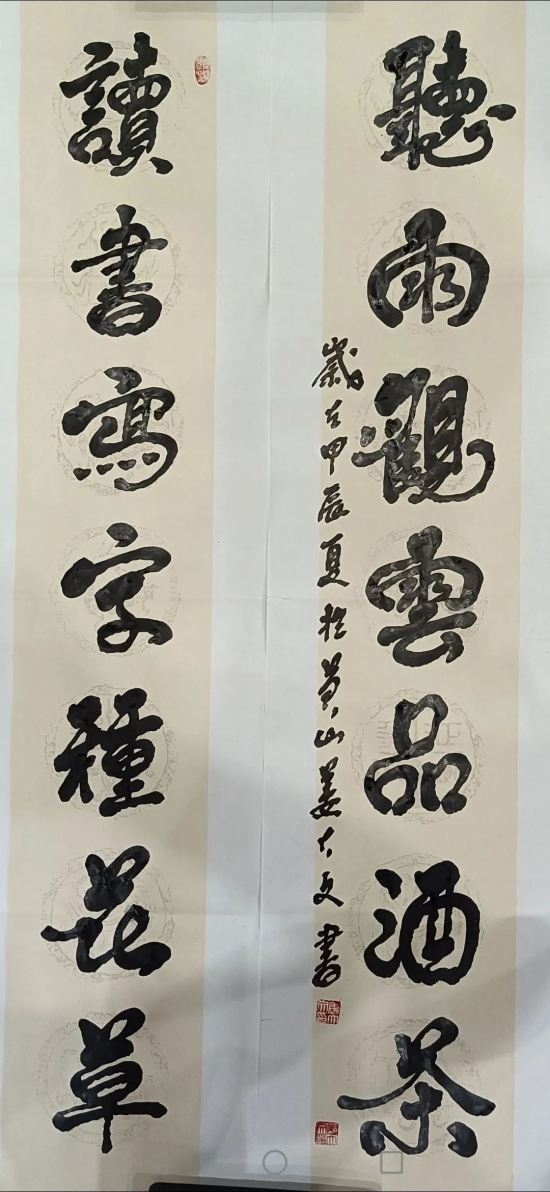 讀書寫字種花草
聽雨觀雲品酒茶
歲在甲辰夏於黄山姜大書